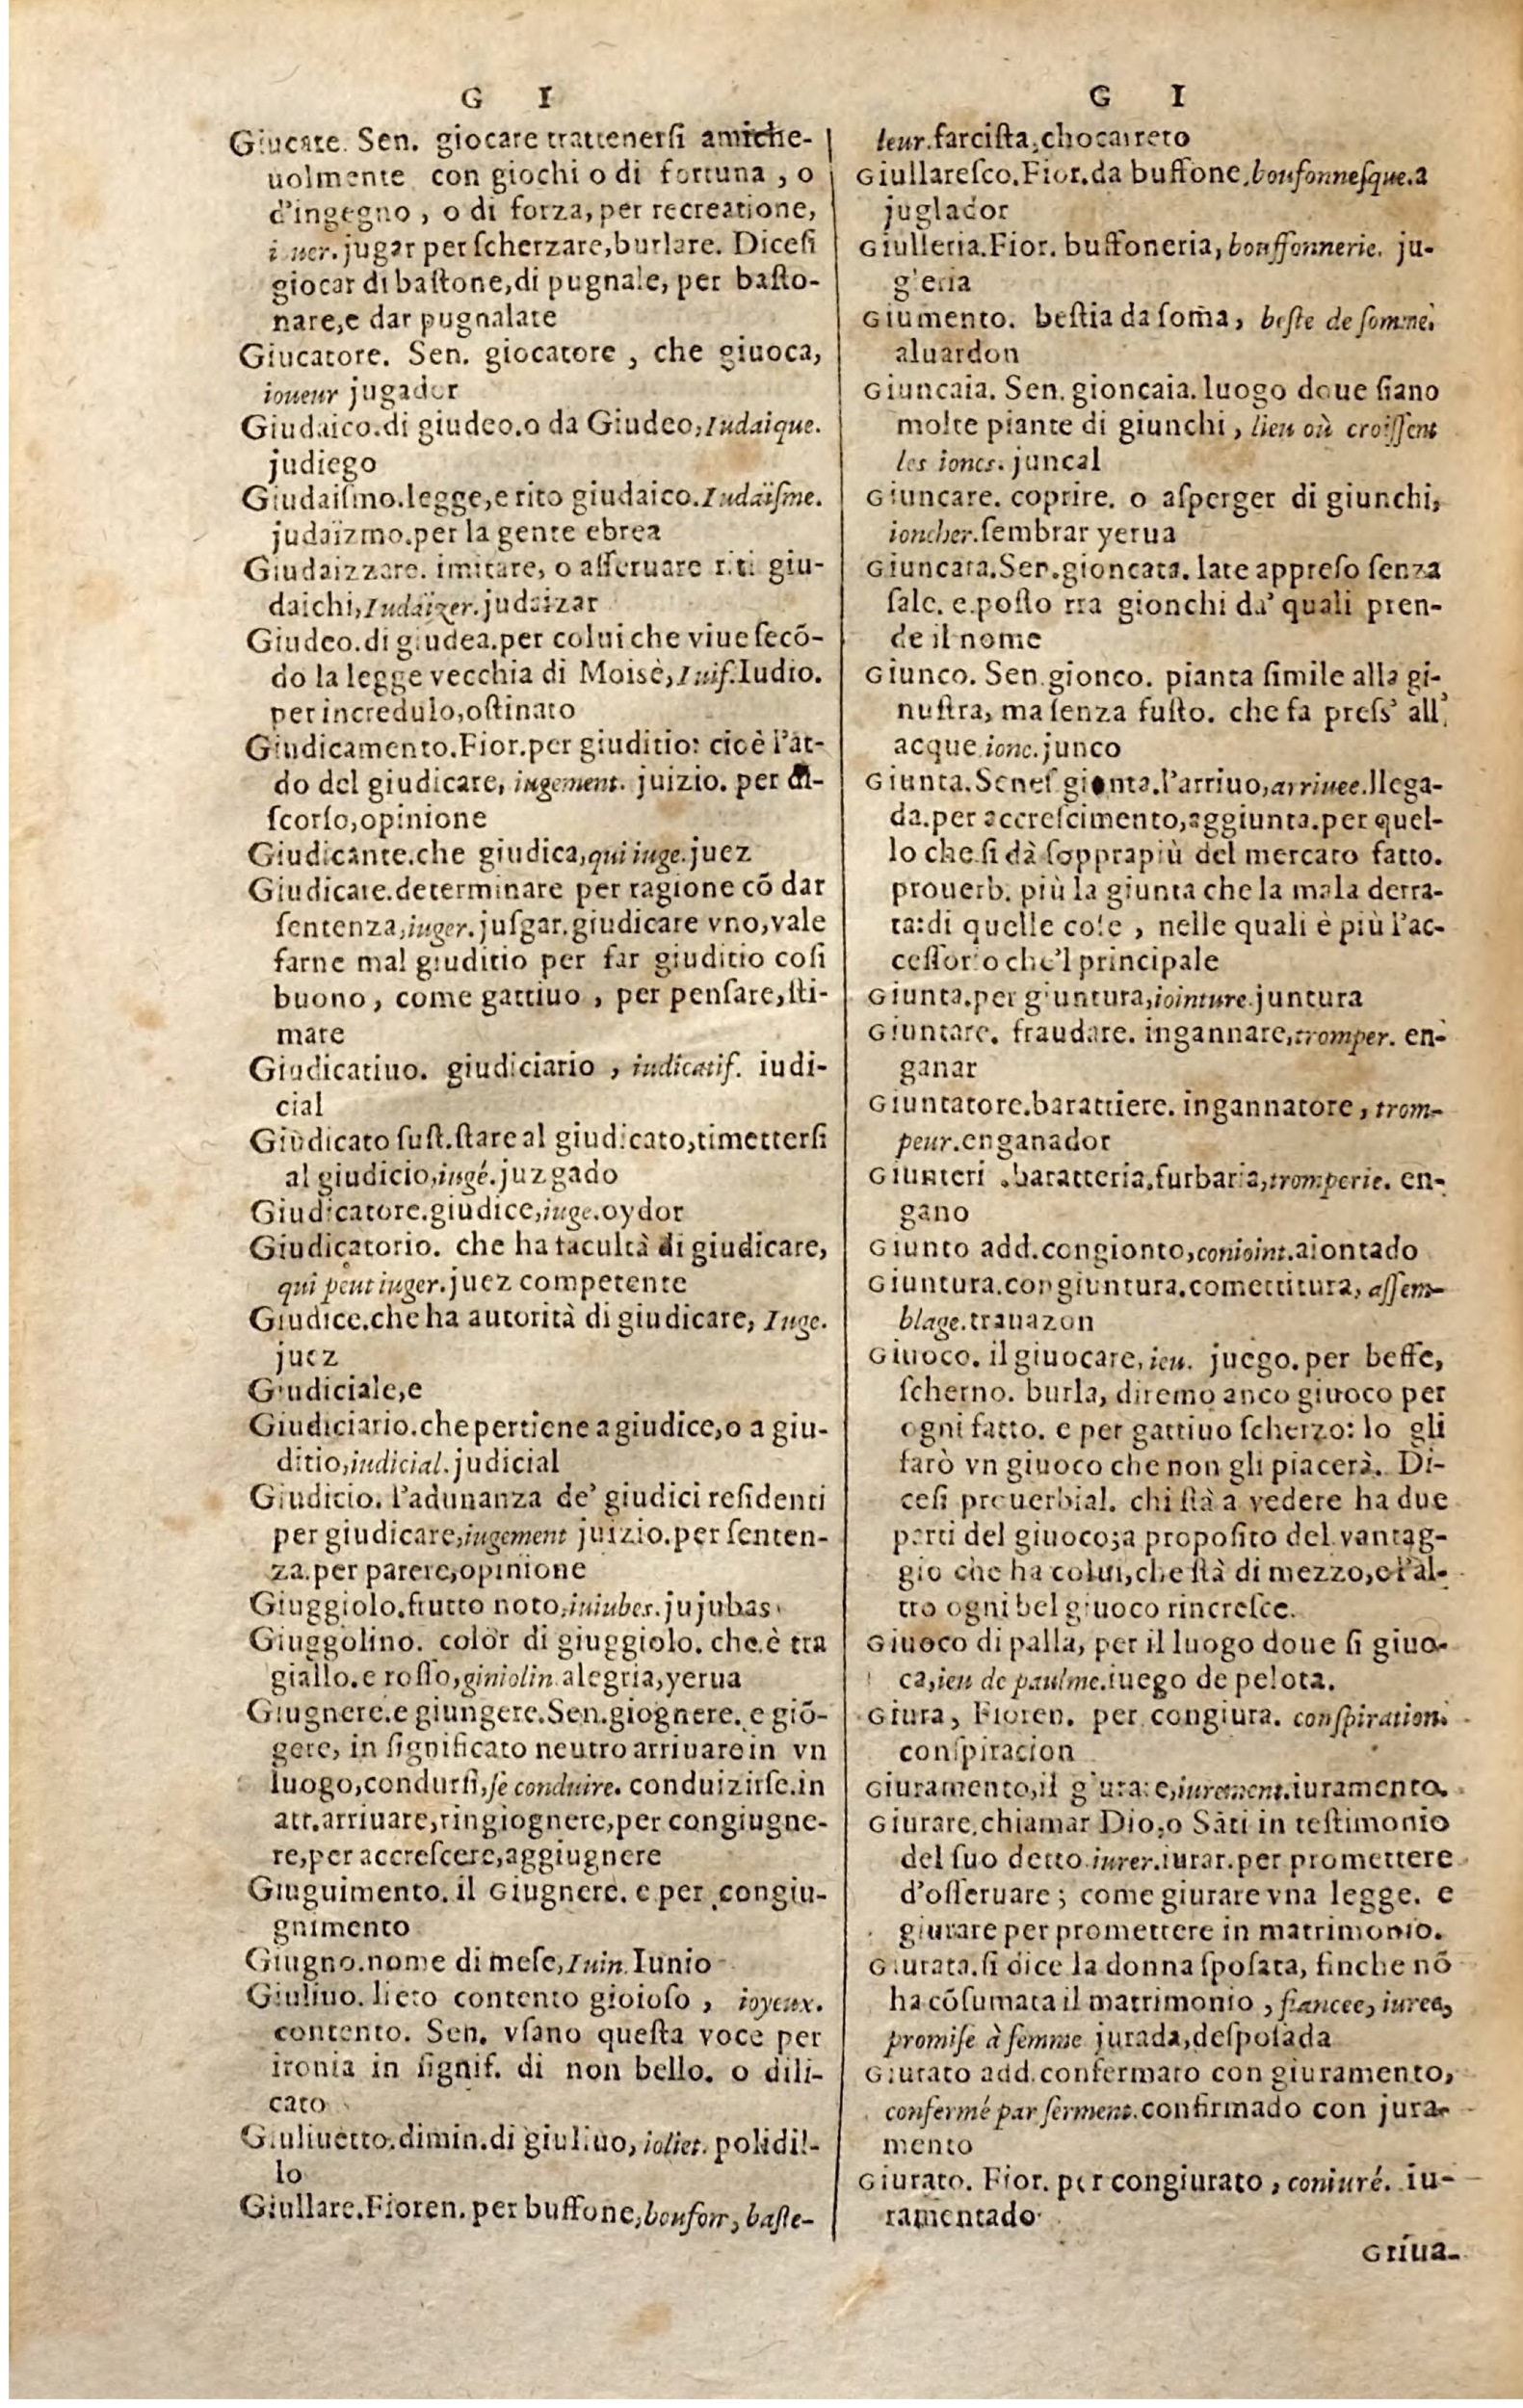 G I
Giucare. Sen. giocare trattenersi amiche-
uolmente con giochi o di fortuna , o
d'ingegno , o di forza, per recreatione,
iouer. jugar per ſcherzare,burlare. Diceſi
giocar di baſtone,di pugnale, per baſto-
nare,e dar pugnalate
Giucatore. Sen. giocatore , che giuoca,
ioueur jugador
Giudaico.di giudeo.o da Giudeo,Iudaique.
judiego
Giudaiſmo.legge,e rito giudaico.Iudaïſme.
judaïzmo.per la gente ebrea
Giudaizzare. imitare, o aſſeruare riti giu-
daichi,Iudaïzer.judaizar
Giudeo.di giudea.per colui che viue ſecõ-
do la legge vecchia di Moisè,Iuif.Iudio.
per incredulo,oſtinato
Giudicamento.Fior.per giuditio: cioè l'at-
do del giudicare, iugement. juizio. per di-
ſcorſo,opinione
Giudicante.che giudica,qui iuge.juez
Giudicare.determinare per ragione cõ dar
ſentenza,iuger.juſgar.giudicare vno,vale
farne mal giuditio per far giuditio coſi
buono , come gattiuo , per penſare,ſti-
mare
Giudicatiuo. giudiciario , iudicatif. iudi-
cial
Giudicato ſuſt.ſtare al giudicato,rimetterſi
al giudicio,iugé.juzgado
Giudicatore.giudice,iuge.oydor
Giudicatorio. che ha facultà di giudicare,
qui peut iuger.juez competente
Giudice.che ha autorità di giudicare, Iuge.
juez
Giudiciale,e
Giudiciario.che pertiene a giudice,o a giu-
ditio,iudicial.judicial
Giudicio. l'adunanza de' giudici reſidenti
per giudicare,iugement juizio.per ſenten-
za.per parere,opinione
Giuggiolo.frutto noto,iuiubes.jujubas
Giuggolino. color di giuggiolo. che è tra
giallo.e roſſo,giniolin.alegria,yerua
Giugnere.e giungere.Sen.giognere. e giõ-
gere, in ſignificato neutro arriuare in vn
luogo,condurſi,ſe conduire. conduizirſe.in
att.arriuare,ringiognere,per congiugne-
re,per accreſcere,aggiugnere
Giuguimento. il Giugnere. e per congiu-
gnimento
Giugno.nome di meſe,Iuin.Iunio
Giuliuo. lieto contento gioioſo , ioyeux.
contento. Sen. vſano queſta voce per
ironia in ſignif. di non bello. o dili-
cato
Giuliuetto.dimin.di giuliuo, ioliet. polidil-
lo
Giullare.Fioren. per buffone,boufon, baſte-
G I
leur.farciſta,chocarreto
Giullareſco.Fior.da buffone,boufonneſque.a
juglador
Giulleria.Fior. buffoneria, bouffonnerie. ju-
gleria
Giumento. beſtia da ſoma, beſte de ſomme.
aluardon
Giuncaia. Sen. gioncaia. luogo doue ſiano
molte piante di giunchi , lieu où croiſſent
les ioncs. juncal
Giuncare. coprire. o aſperger di giunchi,
ioncher.ſembrar yerua
Giuncata.Sen.gioncata. late appreſo ſenza
ſale. e poſto tra gionchi da' quali pren-
de il nome
Giunco. Sen.gionco. pianta ſimile alla gi-
nuſtra, ma ſenza fuſto. che fa preſs' all'
acque ionc.junco
Giunta.Seneſ gionta.l'arriuo,arriuee.llega-
da.per accreſcimento,aggiunta.per quel-
lo che ſi dà ſopprapiù del mercato fatto.
prouerb. più la giunta che la mala derra-
ta:di quelle coſe , nelle quali è più l'ac-
ceſſorio che'l principale
Giunta.per giuntura,iointure.juntura
Giuntare. fraudare. ingannare,tromper. en-
ganar
Giuntatore.barattiere. ingannatore , trom-
peur.enganador
Giunteri .baratteria.furbaria,tromperie. en-
gano
Giunto add.congionto,conioint.aiontado
Giuntura.congiuntura.comettitura, aſſem-
blage.trauazon
Giuoco. il giuocare,ieu. juego. per beffe,
ſcherno. burla, diremo anco giuoco per
ogni fatto. e per gattiuo ſcherzo: Io gli
farò vn giuoco che non gli piacerà. Di-
ceſi prouerbial. chi ſtà a vedere ha due
parti del giuoco;a propoſito del vantag-
gio che ha colui,che ſtà di mezzo,e l'al-
tro ogni bel giuoco rincreſce.
Giuoco di palla, per il luogo doue ſi giuo-
ca,ieu de paulme.iuego de pelota.
Giura, Fioren. per congiura. conſpiration.
conſpiracion
Giuramento,il giurare,iurement.iuramento.
Giurare.chiamar Dio,o Sãti in teſtimonio
del ſuo detto.iurer.iurar.per promettere
d'oſſeruare ; come giurare vna legge. e
giurare per promettere in matrimonio.
Giurata.ſi dice la donna ſpoſata, finche nõ
ha cõſumata il matrimonio , fiancee, iuree,
promiſe à femme jurada,deſpoſada
Giurato add.confermato con giuramento,
confermé par ſerment.confirmado con jura-
mento
Giurato. Fior. per congiurato , coniuré. iu-
ramentado
Griua-